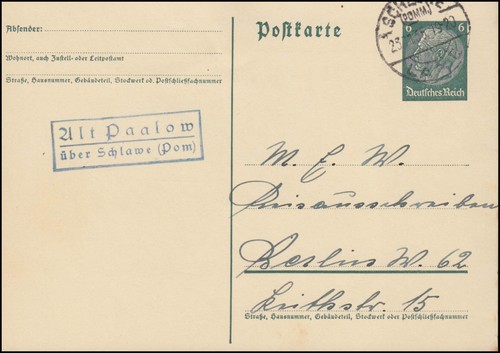 Absender:
Wohnort, auch Zustell- oder Leitpostamt
Straße, Hausnummer, Gebäudeteil, Stockwerk od. Postschließfachnummer
Postkarte
SCHLAWE
(POMM)
6 6
Deutsches Reich
Alt Paalow
über Schlawe (Pom)
M. E. W.
Preisausschreiben
Berlin W. 62
Keithstr. 15
Straße, Hausnummer, Gebäudeteil, Stockwerk oder Postschließfachnummer